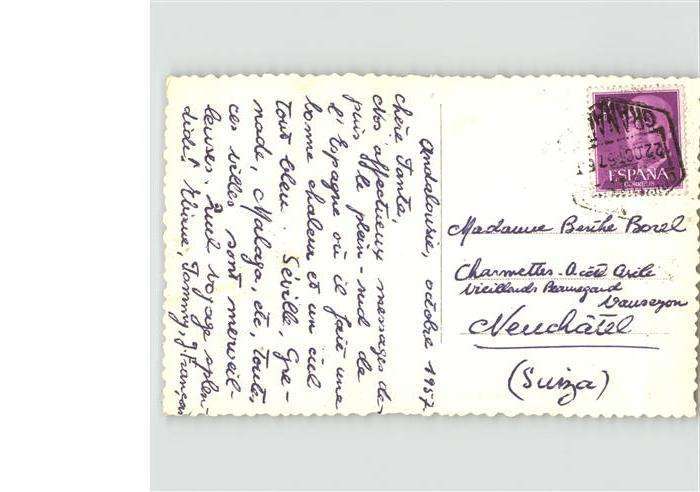 Andalousie, octobre 1957
chère Tante,
Nos affectueux messages de-
puis le plein-sud de
l'Espagne où il fait une
bonne chaleur et un ciel
tout bleu. Séville, Gre-
nade, Malaga, etc, toutes
ces villes sont merveil-
leuses. Bel voyage splen-
dide! Eliane, Tommy, J. François
GRANA
22 OCT 57
ESPAÑA
CORREOS
Madame Berthe Borel
Charmettes. A côté Asile
Vieillards Beauregard
Vauseyon
Neuchâtel
(Suiza)